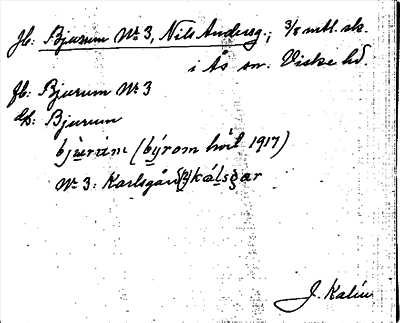 Jb: Bjurum Nr 3, Nils Andersg., 3/8 mtl. sk.
i Ås sn. Viske hd.
fb: Bjurum Nr 3
df: Bjurum
bjùrùm (býrom 1917)
Nr 3: Karlsgård kálsgar
J. Kalén